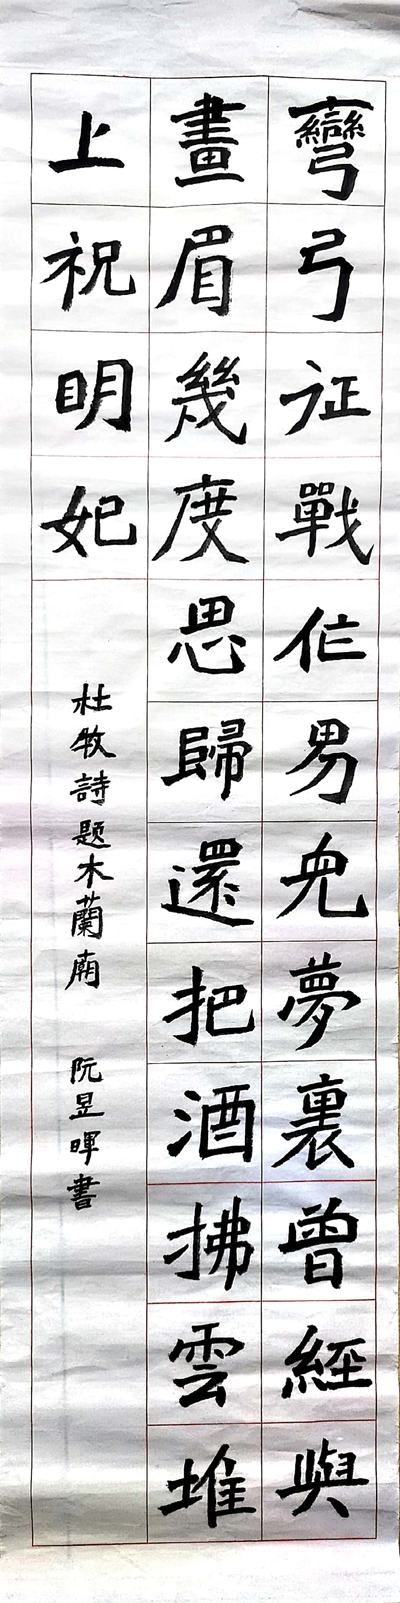 彎弓征戰作男兒夢裏曾經與
畫眉幾度思歸還把酒拂雲堆
上祝明妃
杜牧詩題木蘭廟 阮昱暉書